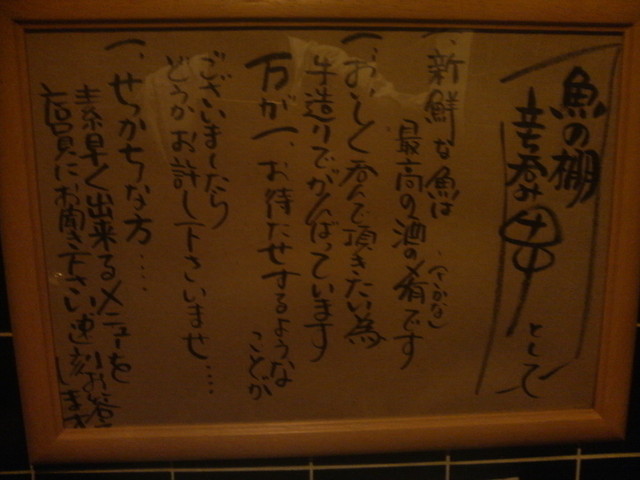 魚の棚
立ち呑み
として
一、新鮮な魚は
最高の酒の肴です
(さかな)
一、おいしく呑んで頂きたい為
手造りでがんばっています
万が一、お待たせするような
ことが
ございましたら
どうかお許し下さいませ....
一、せっかちな方....
素早く出来るメニューを
店員にお聞き下さい速刻お答え
します